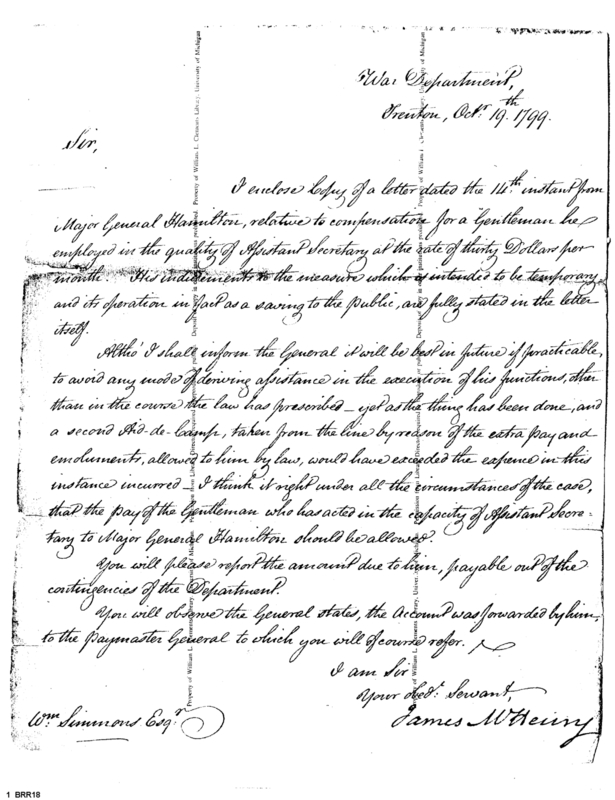 War Department,
Trenton, Octr. 19th. 1799.
Sir,
I enclose Copy of a letter dated the 14th. instant from
Major General Hamilton, relative to compensation for a Gentleman he
employed in the quality of Assistant Secretary at the rate of thirty Dollars per
month. His inducements to the measure which is intended to be temporary
and its operation in fact as a saving to the Public, are fully stated in the letter
itself.
Altho' I shall inform the General it will be best in future if practicable,
to avoid any mode of deriving assistance in the execution of his functions, other
than in the course the law has prescribed — yet as the thing has been done, and
a second Aid-de-Camp, taken from the line by reason of the extra pay and
emoluments, allowed to him by law, would have exceeded the expence in this
instance incurred — I think it right under all the circumstances of the case,
that the pay of the Gentleman who has acted in the capacity of Assistant Secre-
tary to Major General Hamilton should be allowed.
You will please report the amount due to him, payable out of the
contingencies of the Department.
You will observe the General states, the Account was forwarded by him,
to the Paymaster General to which you will of course refer.
I am Sir
Your Obedt. Servant,
James McHenry
Wm. Simmons Esqr.
Property of William L. Clements Library, University of Michigan
1 BRR18